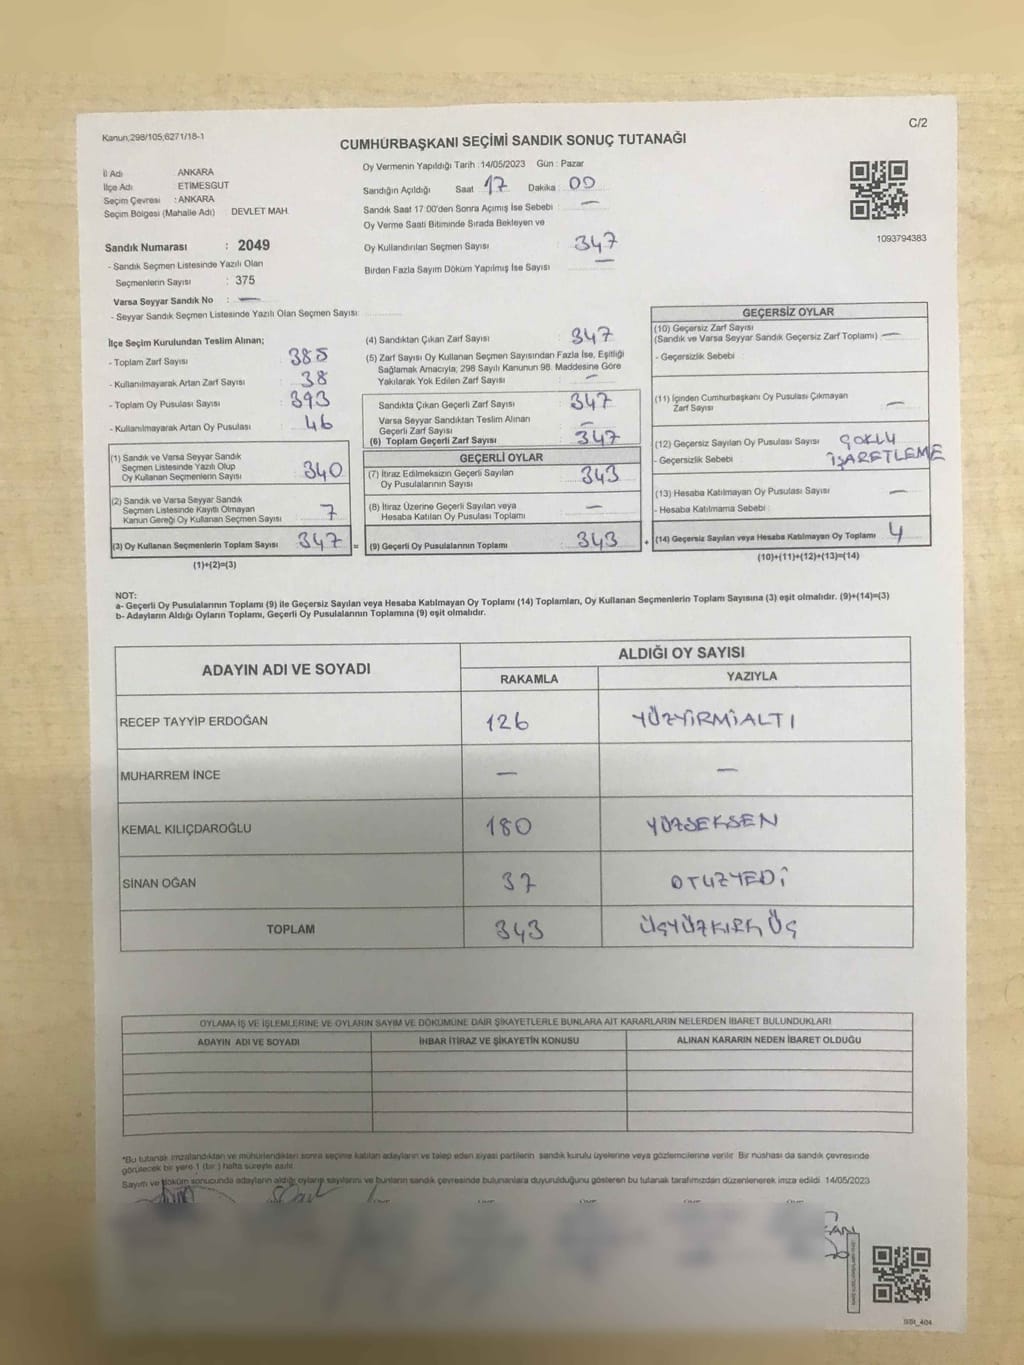 Kanun;298/105,6271/18-1
C/2
CUMHURBAŞKANI SEÇİMİ SANDIK SONUÇ TUTANAĞI
İl Adı ANKARA
İlçe Adı : ETİMESGUT
Seçim Çevresi : ANKARA
Seçim Bölgesi (Mahalle Adı) DEVLET MAH.
Sandık Numarası : 2049
- Sandık Seçmen Listesinde Yazılı Olan
Seçmenlerin Sayısı : 375
Varsa Seyyar Sandık No : —
- Seyyar Sandık Seçmen Listesinde Yazılı Olan Seçmen Sayısı:
Oy Vermenin Yapıldığı Tarih : 14/05/2023 Gün : Pazar
Sandığın Açıldığı Saat 17 Dakika : 00
Sandık Saat 17:00'den Sonra Açımış İse Sebebi : —
Oy Verme Saati Bitiminde Sırada Bekleyen ve
Oy Kullandırılan Seçmen Sayısı 347
Birden Fazla Sayım Döküm Yapılmış İse Sayısı —
1093794383
İlçe Seçim Kurulundan Teslim Alınan;
- Toplam Zarf Sayısı : 385
- Kullanılmayarak Artan Zarf Sayısı : 38
- Toplam Oy Pusulası Sayısı : 393
- Kullanılmayarak Artan Oy Pusulası : 46
(1) Sandık ve Varsa Seyyar Sandık
Seçmen Listesinde Yazılı Olup
Oy Kullanan Seçmenlerin Sayısı : 340
(2) Sandık ve Varsa Seyyar Sandık
Seçmen Listesinde Kayıtlı Olmayan
Kanun Gereği Oy Kullanan Seçmen Sayısı : 7
(3) Oy Kullanan Seçmenlerin Toplam Sayısı : 347 =
(1)+(2)=(3)
(4) Sandıktan Çıkan Zarf Sayısı : 347
(5) Zarf Sayısı Oy Kullanan Seçmen Sayısından Fazla İse, Eşitliği
Sağlamak Amacıyla; 298 Sayılı Kanunun 98. Maddesine Göre
Yakılarak Yok Edilen Zarf Sayısı : —
Sandıkta Çıkan Geçerli Zarf Sayısı : 347
Varsa Seyyar Sandıktan Teslim Alınan
Geçerli Zarf Sayısı : —
(6) Toplam Geçerli Zarf Sayısı : 347
GEÇERLİ OYLAR
(7) İtiraz Edilmeksizin Geçerli Sayılan
Oy Pusulalarının Sayısı : 343
(8) İtiraz Üzerine Geçerli Sayılan veya
Hesaba Katılan Oy Pusulaları Toplamı : —
(9) Geçerli Oy Pusulalarının Toplamı : 343 +
GEÇERSİZ OYLAR
(10) Geçersiz Zarf Sayısı
(Sandık ve Varsa Seyyar Sandık Geçersiz Zarf Toplamı) —
- Geçersizlik Sebebi
(11) İçinden Cumhurbaşkanı Oy Pusulası Çıkmayan
Zarf Sayısı : —
(12) Geçersiz Sayılan Oy Pusulası Sayısı : ÇOKLU
- Geçersizlik Sebebi İŞARETLEME
(13) Hesaba Katılmayan Oy Pusulası Sayısı : —
- Hesaba Katılmama Sebebi :
(14) Geçersiz Sayılan veya Hesaba Katılmayan Oy Toplamı : 4
(10)+(11)+(12)+(13)=(14)
NOT:
a- Geçerli Oy Pusulalarının Toplamı (9) ile Geçersiz Sayılan veya Hesaba Katılmayan Oy Toplamı (14) Toplamları, Oy Kullanan Seçmenlerin Toplam Sayısına (3) eşit olmalıdır. (9)+(14)=(3)
b- Adayların Aldığı Oyların Toplamı, Geçerli Oy Pusulalarının Toplamına (9) eşit olmalıdır.
ADAYIN ADI VE SOYADI ALDIĞI OY SAYISI
RAKAMLA YAZIYLA
RECEP TAYYİP ERDOĞAN 126 YÜZYİRMİALTI
MUHARREM İNCE — —
KEMAL KILIÇDAROĞLU 180 YÜZSEKSEN
SİNAN OĞAN 37 OTUZYEDİ
TOPLAM 343 ÜÇYÜZKIRK ÜÇ
OYLAMA İŞ VE İŞLEMLERİNE VE OYLARIN SAYIM VE DÖKÜMÜNE DAİR ŞİKAYETLERLE BUNLARA AİT KARARLARIN NELERDEN İBARET BULUNDUKLARI
ADAYIN ADI VE SOYADI İHBAR İTİRAZ VE ŞİKAYETİN KONUSU ALINAN KARARIN NEDEN İBARET OLDUĞU
*Bu tutanak imzalandıktan ve mühürlendikten sonra seçime katılan adayların ve talep eden siyasi partilerin sandık kurulu üyelerine veya gözlemcilerine verilir. Bir nüshası da sandık çevresinde
görülecek bir yere 1 (bir ) hafta süreyle asılır.
Sayım ve döküm sonucunda adayların aldığı oyların sayılarını ve bunların sandık çevresinde bulunanlara duyurulduğunu gösteren bu tutanak tarafımızdan düzenlenerek imza edildi. 14/05/2023